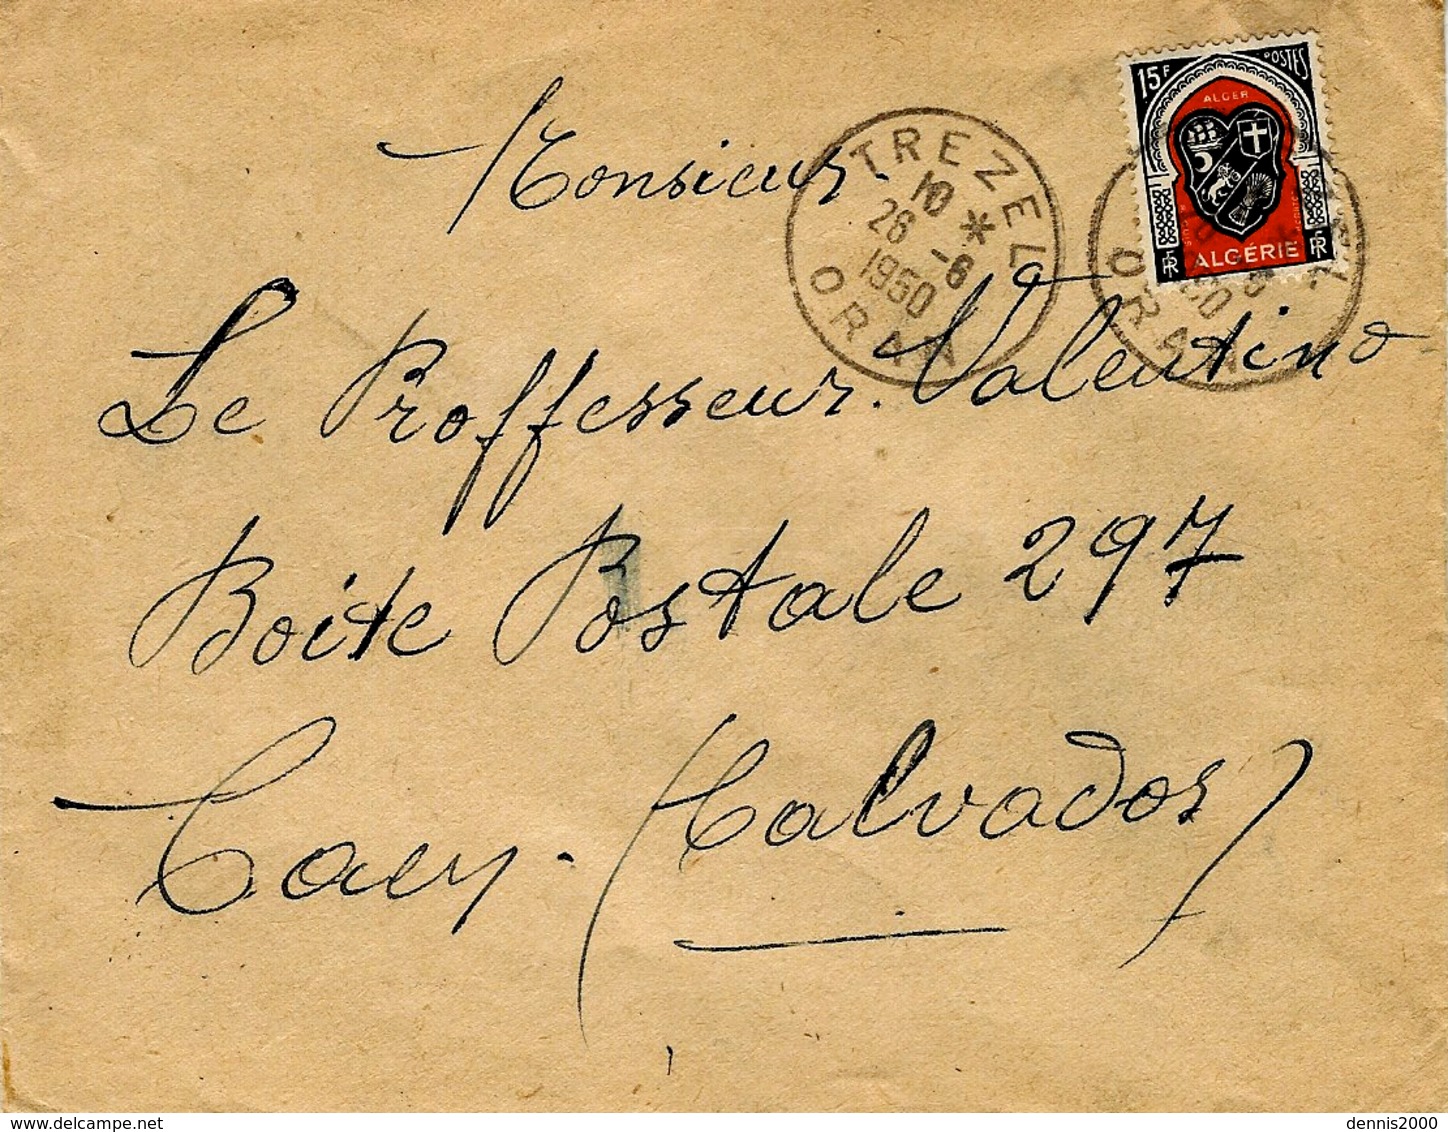 Monsieur.
Le Proffesseur. Valentino
Boite Postale 297
Caen. (Calvados)
TREZEL
10 *
26 -6
1950
ORAN
15F POSTES
ALGER
ALGÉRIE
RF RF
ORAN
delcampe.net
dennis2000